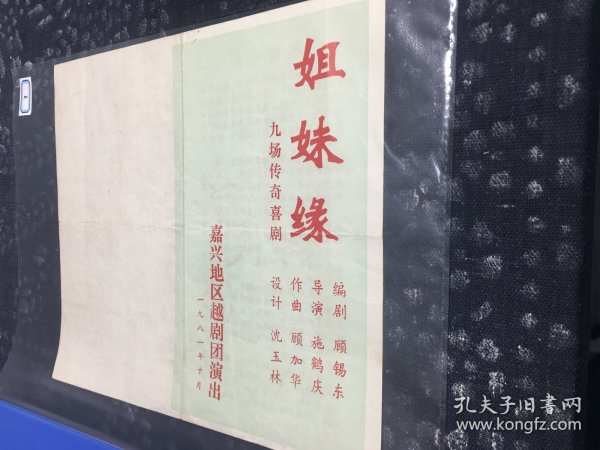 姐妹缘
九场传奇喜剧
编剧 顾锡东
导演 施鹤庆
作曲 顾加华
设计 沈玉林
嘉兴地区越剧团演出
一九八一年十月
孔夫子旧书网
www.kongfz.com